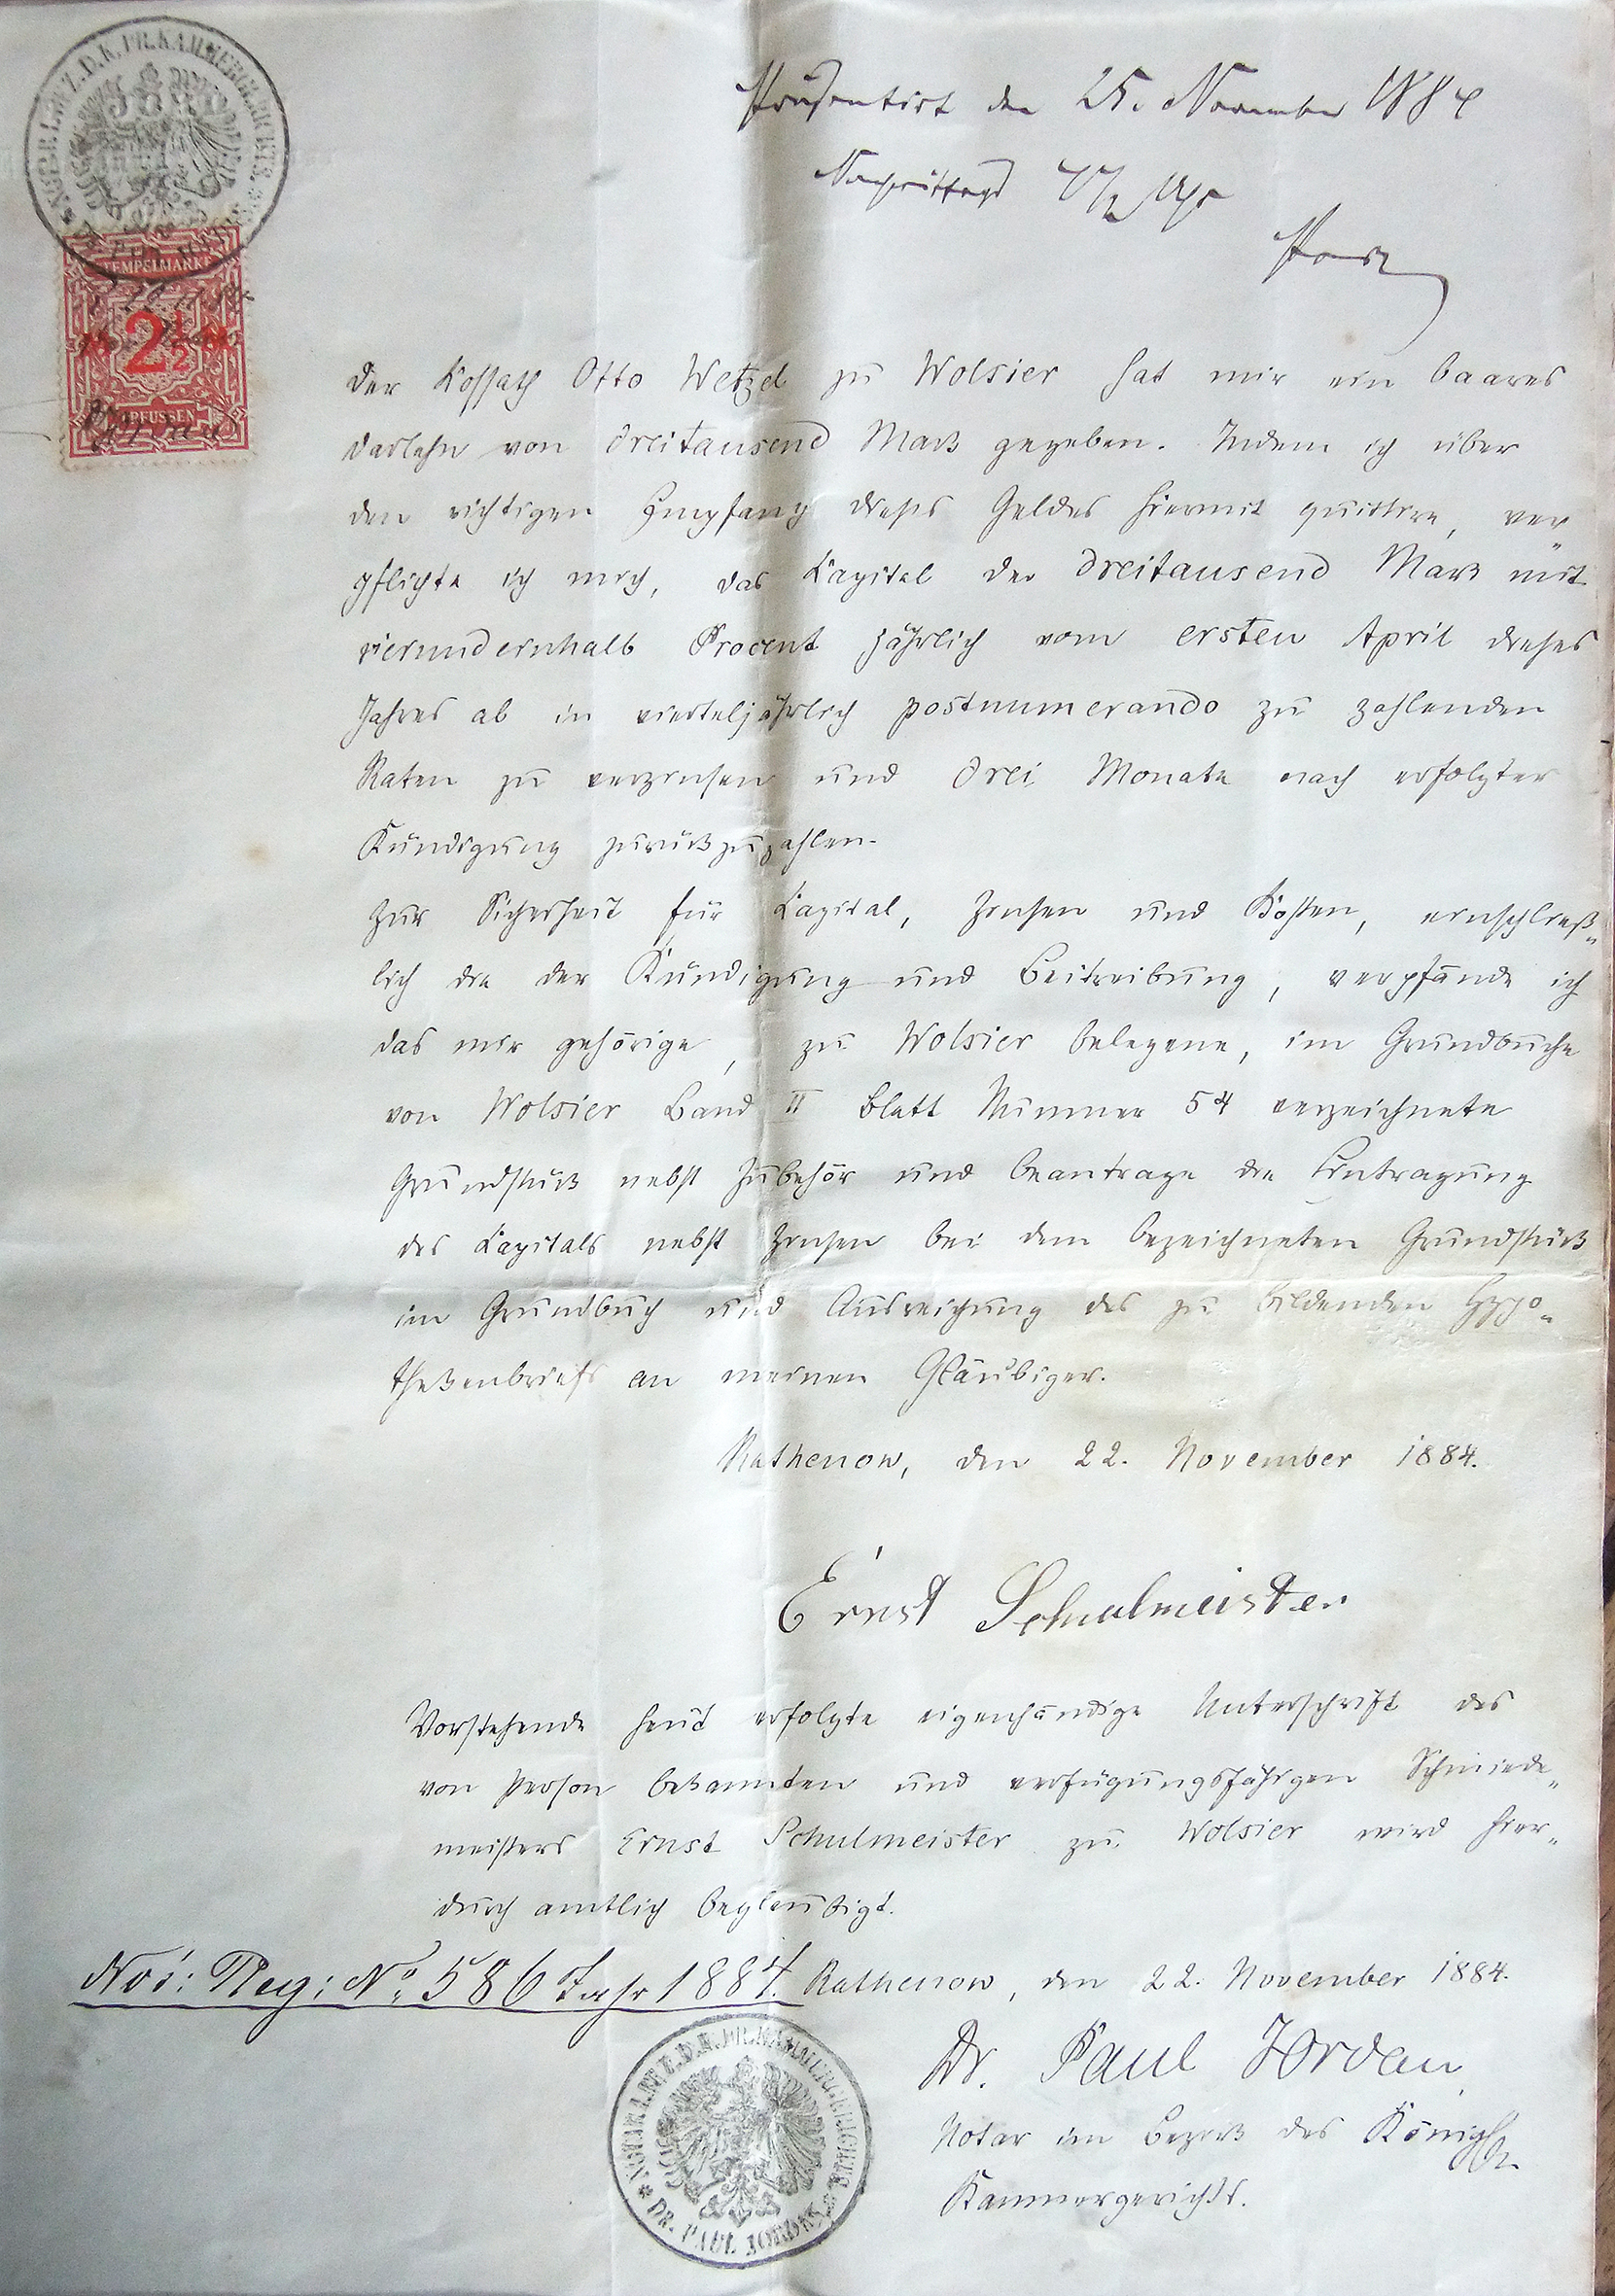 NOTAR I. BEZ. D. K. PR. KAMMERGERICHTS
STEMPELMARKE
2½
PREUSSEN
Präsentirt den 25. November 1884
Nachmittags Uhr
Der Kossath Otto Wetzel zu Wolsier hat mir ein baares
Darlehn von dreitausend Mark gegeben. Indem ich über
den richtigen Empfang dieses Geldes hiermit quittire, ver
pflichte ich mich, das Capital der dreitausend Mark mit
vierundeinhalb Procent jährlich vom ersten April dieses
Jahres ab in vierteljährlich postnumerando zu zahlenden
Raten zu verzinsen und drei Monate nach erfolgter
Kündigung zurückzuzahlen.
Zur Sicherheit für Capital, Zinsen und Kosten, einschließ„
lich die der Kündigung und Beitreibung, verpfände ich
das mir gehörige, zu Wolsier belegene, im Grundbuche
von Wolsier Band II Blatt Nummer 54 verzeichnete
Grundstück nebst Zubehör und beantrage die Eintragung
des Capitals nebst Zinsen bei dem bezeichneten Grundstück
im Grundbuch und Ausreichung des zu bildenden Hypo„
thekenbriefs an meinen Gläubiger.
Rathenow, den 22. November 1884.
Ernst Schulmeister
Vorstehende heut erfolgte eigenhändige Unterschrift des
von Person bekannten und verfügungsfähigen Schmiede„
meisters Ernst Schulmeister zu Wolsier wird hier„
durch amtlich beglaubigt.
Not: Reg: No. 586 Jahr 1884. Rathenow, den 22. November 1884.
Dr. Paul Jordan,
Notar im Bezirk des Königl.
Kammergerichts.
DR. PAUL JORDAN